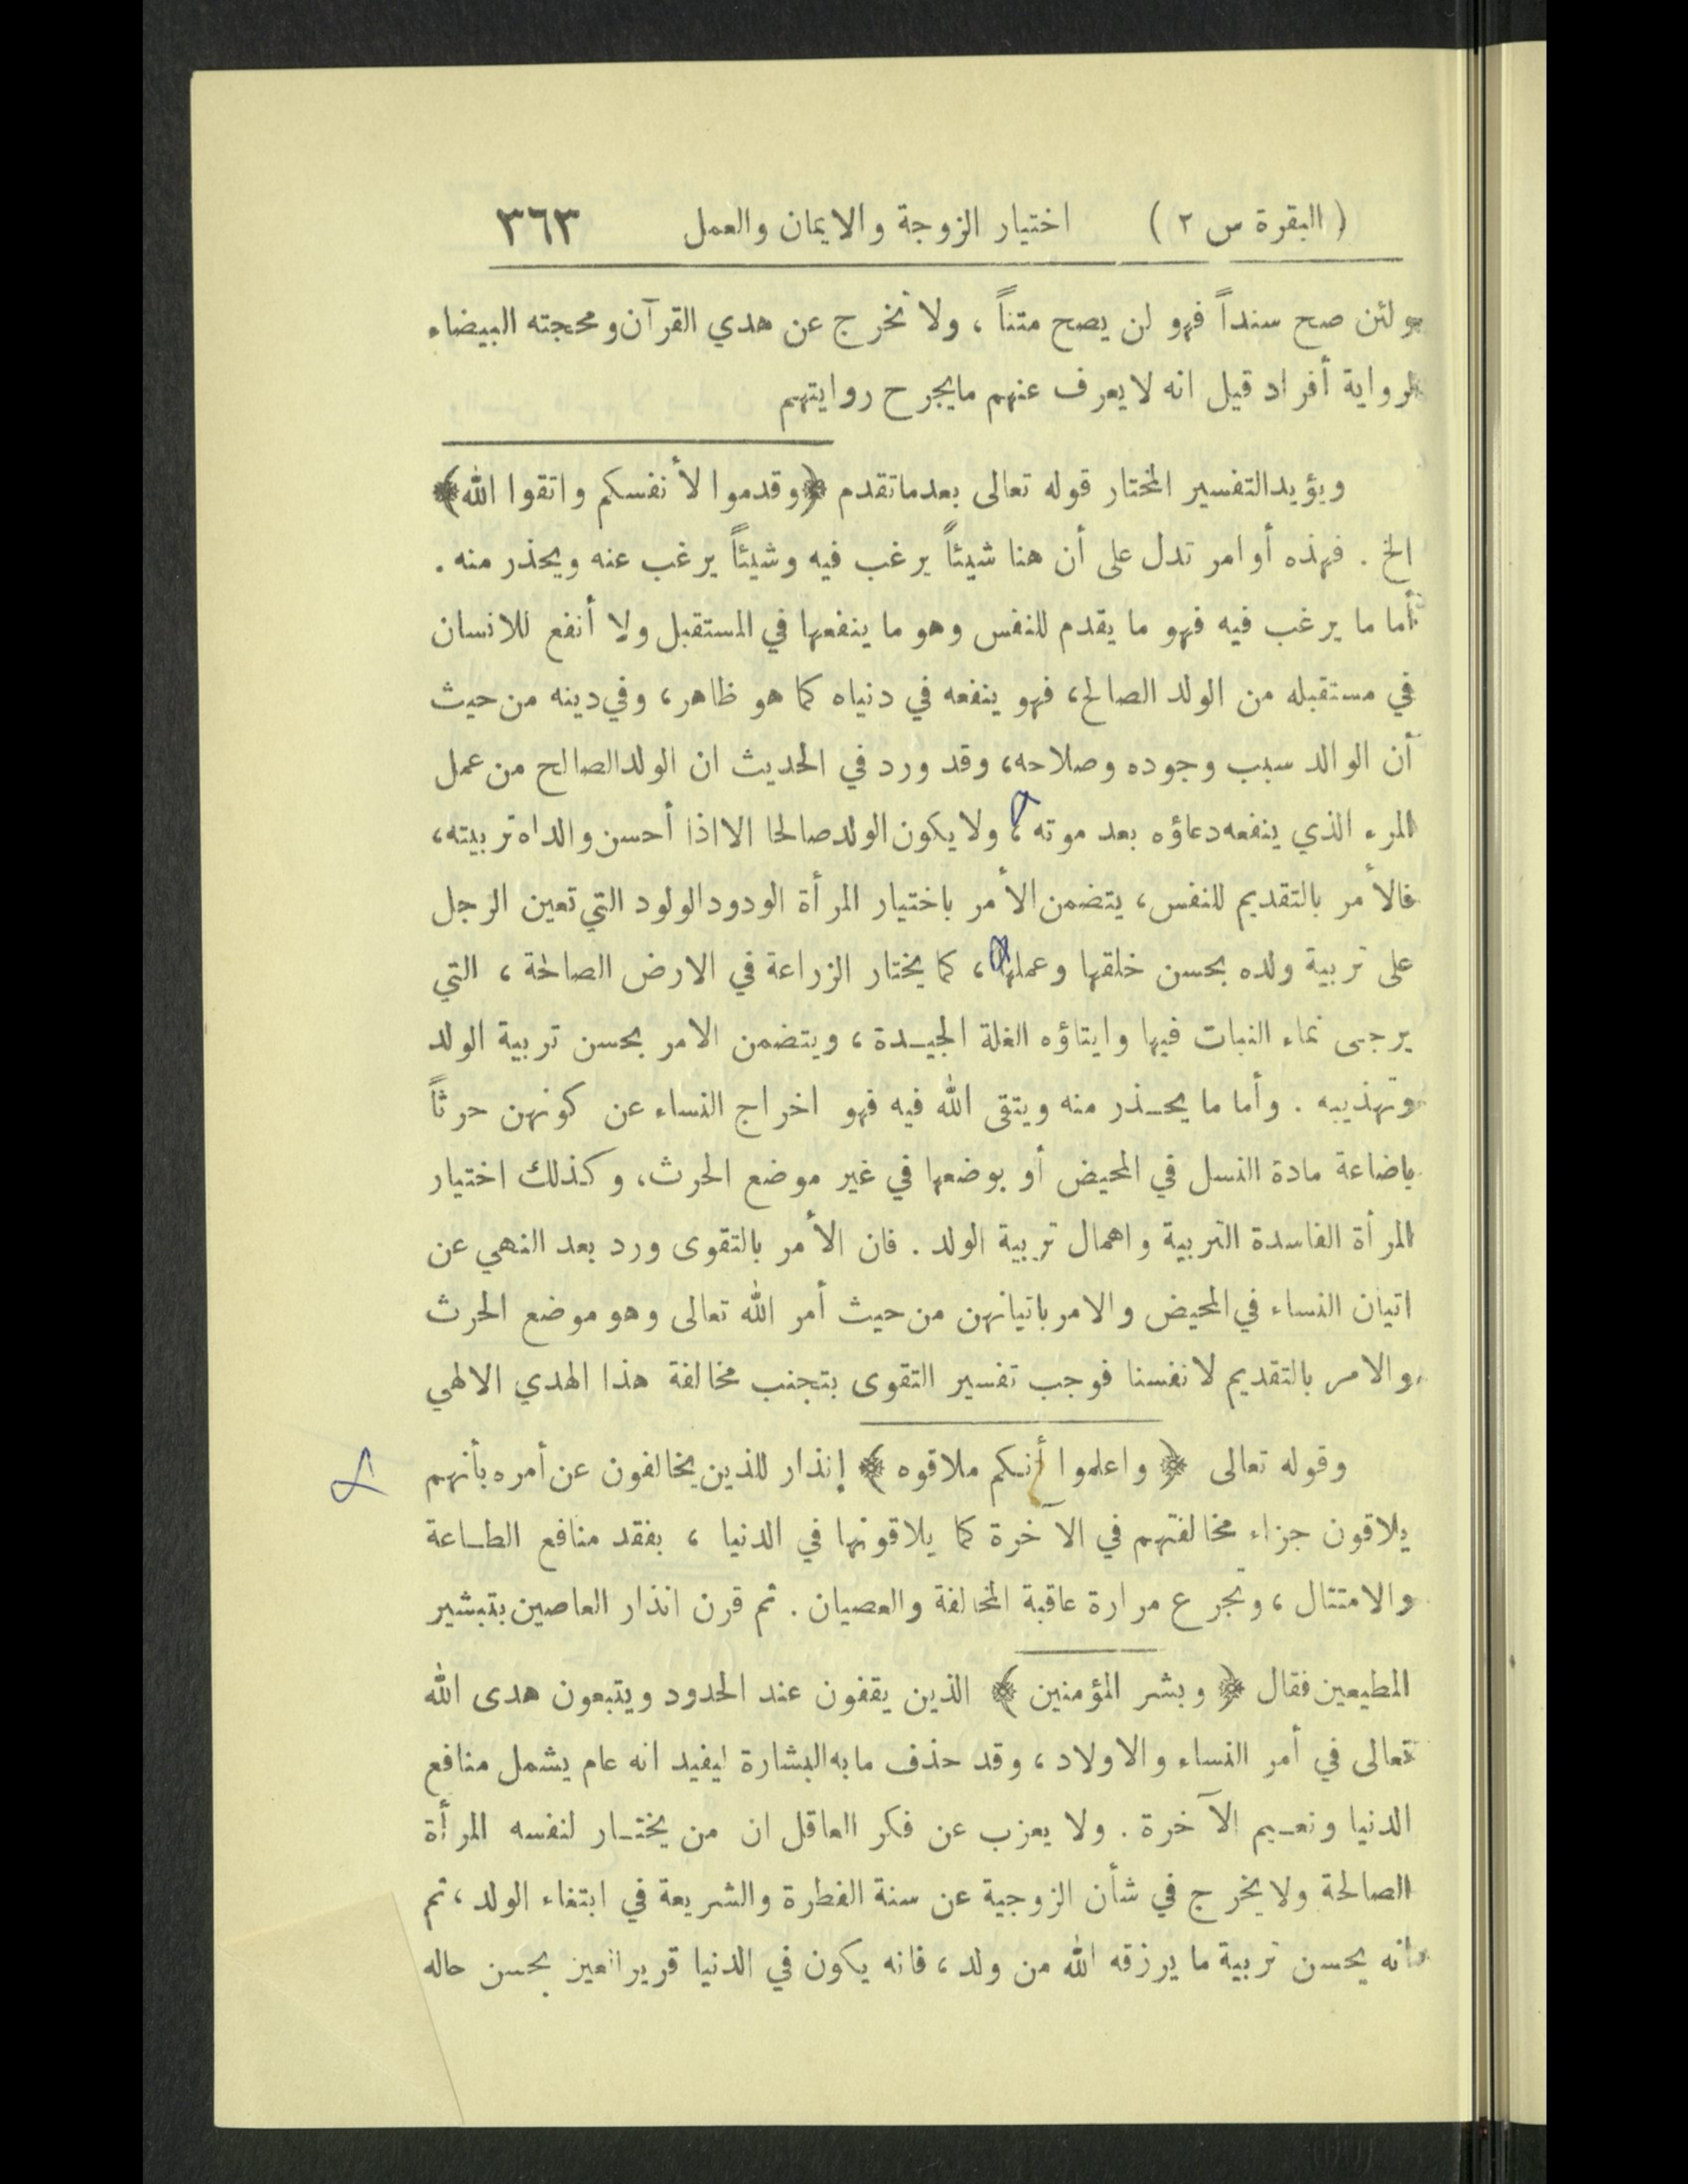 ( البقرة س ٢ ) اختيار الزوجة والايمان والعمل ٣٦٣
ولئن صح سنداً فهو لن يصح متناً ، ولا نخرج عن هدي القرآن ومحجته البيضاء
لرواية أفراد قيل انه لا يعرف عنهم ما يجرح روايتهم
ويؤيد التفسير المختار قوله تعالى بعد ما تقدم ﴿ وقدموا لأنفسكم واتقوا الله ﴾
الخ . فهذه أوامر تدل على أن هنا شيئاً يرغب فيه وشيئاً يرغب عنه ويحذر منه .
أما ما يرغب فيه فهو ما يقدم للنفس وهو ما ينفعها في المستقبل ولا أنفع للانسان
في مستقبله من الولد الصالح، فهو ينفعه في دنياه كما هو ظاهر، وفي دينه من حيث
أن الوالد سبب وجوده وصلاحه، وقد ورد في الحديث ان الولد الصالح من عمل
المرء الذي ينفعه دعاؤه بعد موته ، ولا يكون الولد صالحا الا اذا أحسن والداه تربيته،
فالأمر بالتقديم للنفس، يتضمن الأمر باختيار المرأة الودود الولود التي تعين الرجل
على تربية ولده بحسن خلقها وعملها ، كما يختار الزراعة في الارض الصالحة ، التي
يرجى نماء النبات فيها وايتاؤه الغلة الجيدة ، ويتضمن الامر بحسن تربية الولد
وتهذيبه . وأما ما يحذر منه ويتقى الله فيه فهو اخراج النساء عن كونهن حرثاً
باضاعة مادة النسل في المحيض أو بوضعها في غير موضع الحرث، وكذلك اختيار
المرأة الفاسدة التربية واهمال تربية الولد . فان الأمر بالتقوى ورد بعد النهي عن
اتيان النساء في المحيض والامر باتيانهن من حيث أمر الله تعالى وهو موضع الحرث
والامر بالتقديم لانفسنا فوجب تفسير التقوى بتجنب مخالفة هذا الهدي الالهي
وقوله تعالى ﴿ واعلموا أنكم ملاقوه ﴾ إنذار للذين يخالفون عن أمره بأنهم
يلاقون جزاء مخالفتهم في الآخرة كما يلاقونها في الدنيا ، بفقد منافع الطاعة
والامتثال ، وتجرع مرارة عاقبة المخالفة والعصيان . ثم قرن انذار العاصين بتبشير
المطيعين فقال ﴿ وبشر المؤمنين ﴾ الذين يقفون عند الحدود ويتبعون هدى الله
تعالى في أمر النساء والاولاد ، وقد حذف ما به البشارة ليفيد انه عام يشمل منافع
الدنيا ونعيم الآخرة . ولا يعزب عن فكر العاقل ان من يختار لنفسه المرأة
الصالحة ولا يخرج في شأن الزوجية عن سنة الفطرة والشريعة في ابتغاء الولد ، ثم
انه يحسن تربية ما يرزقه الله من ولد ، فانه يكون في الدنيا قرير العين بحسن حاله